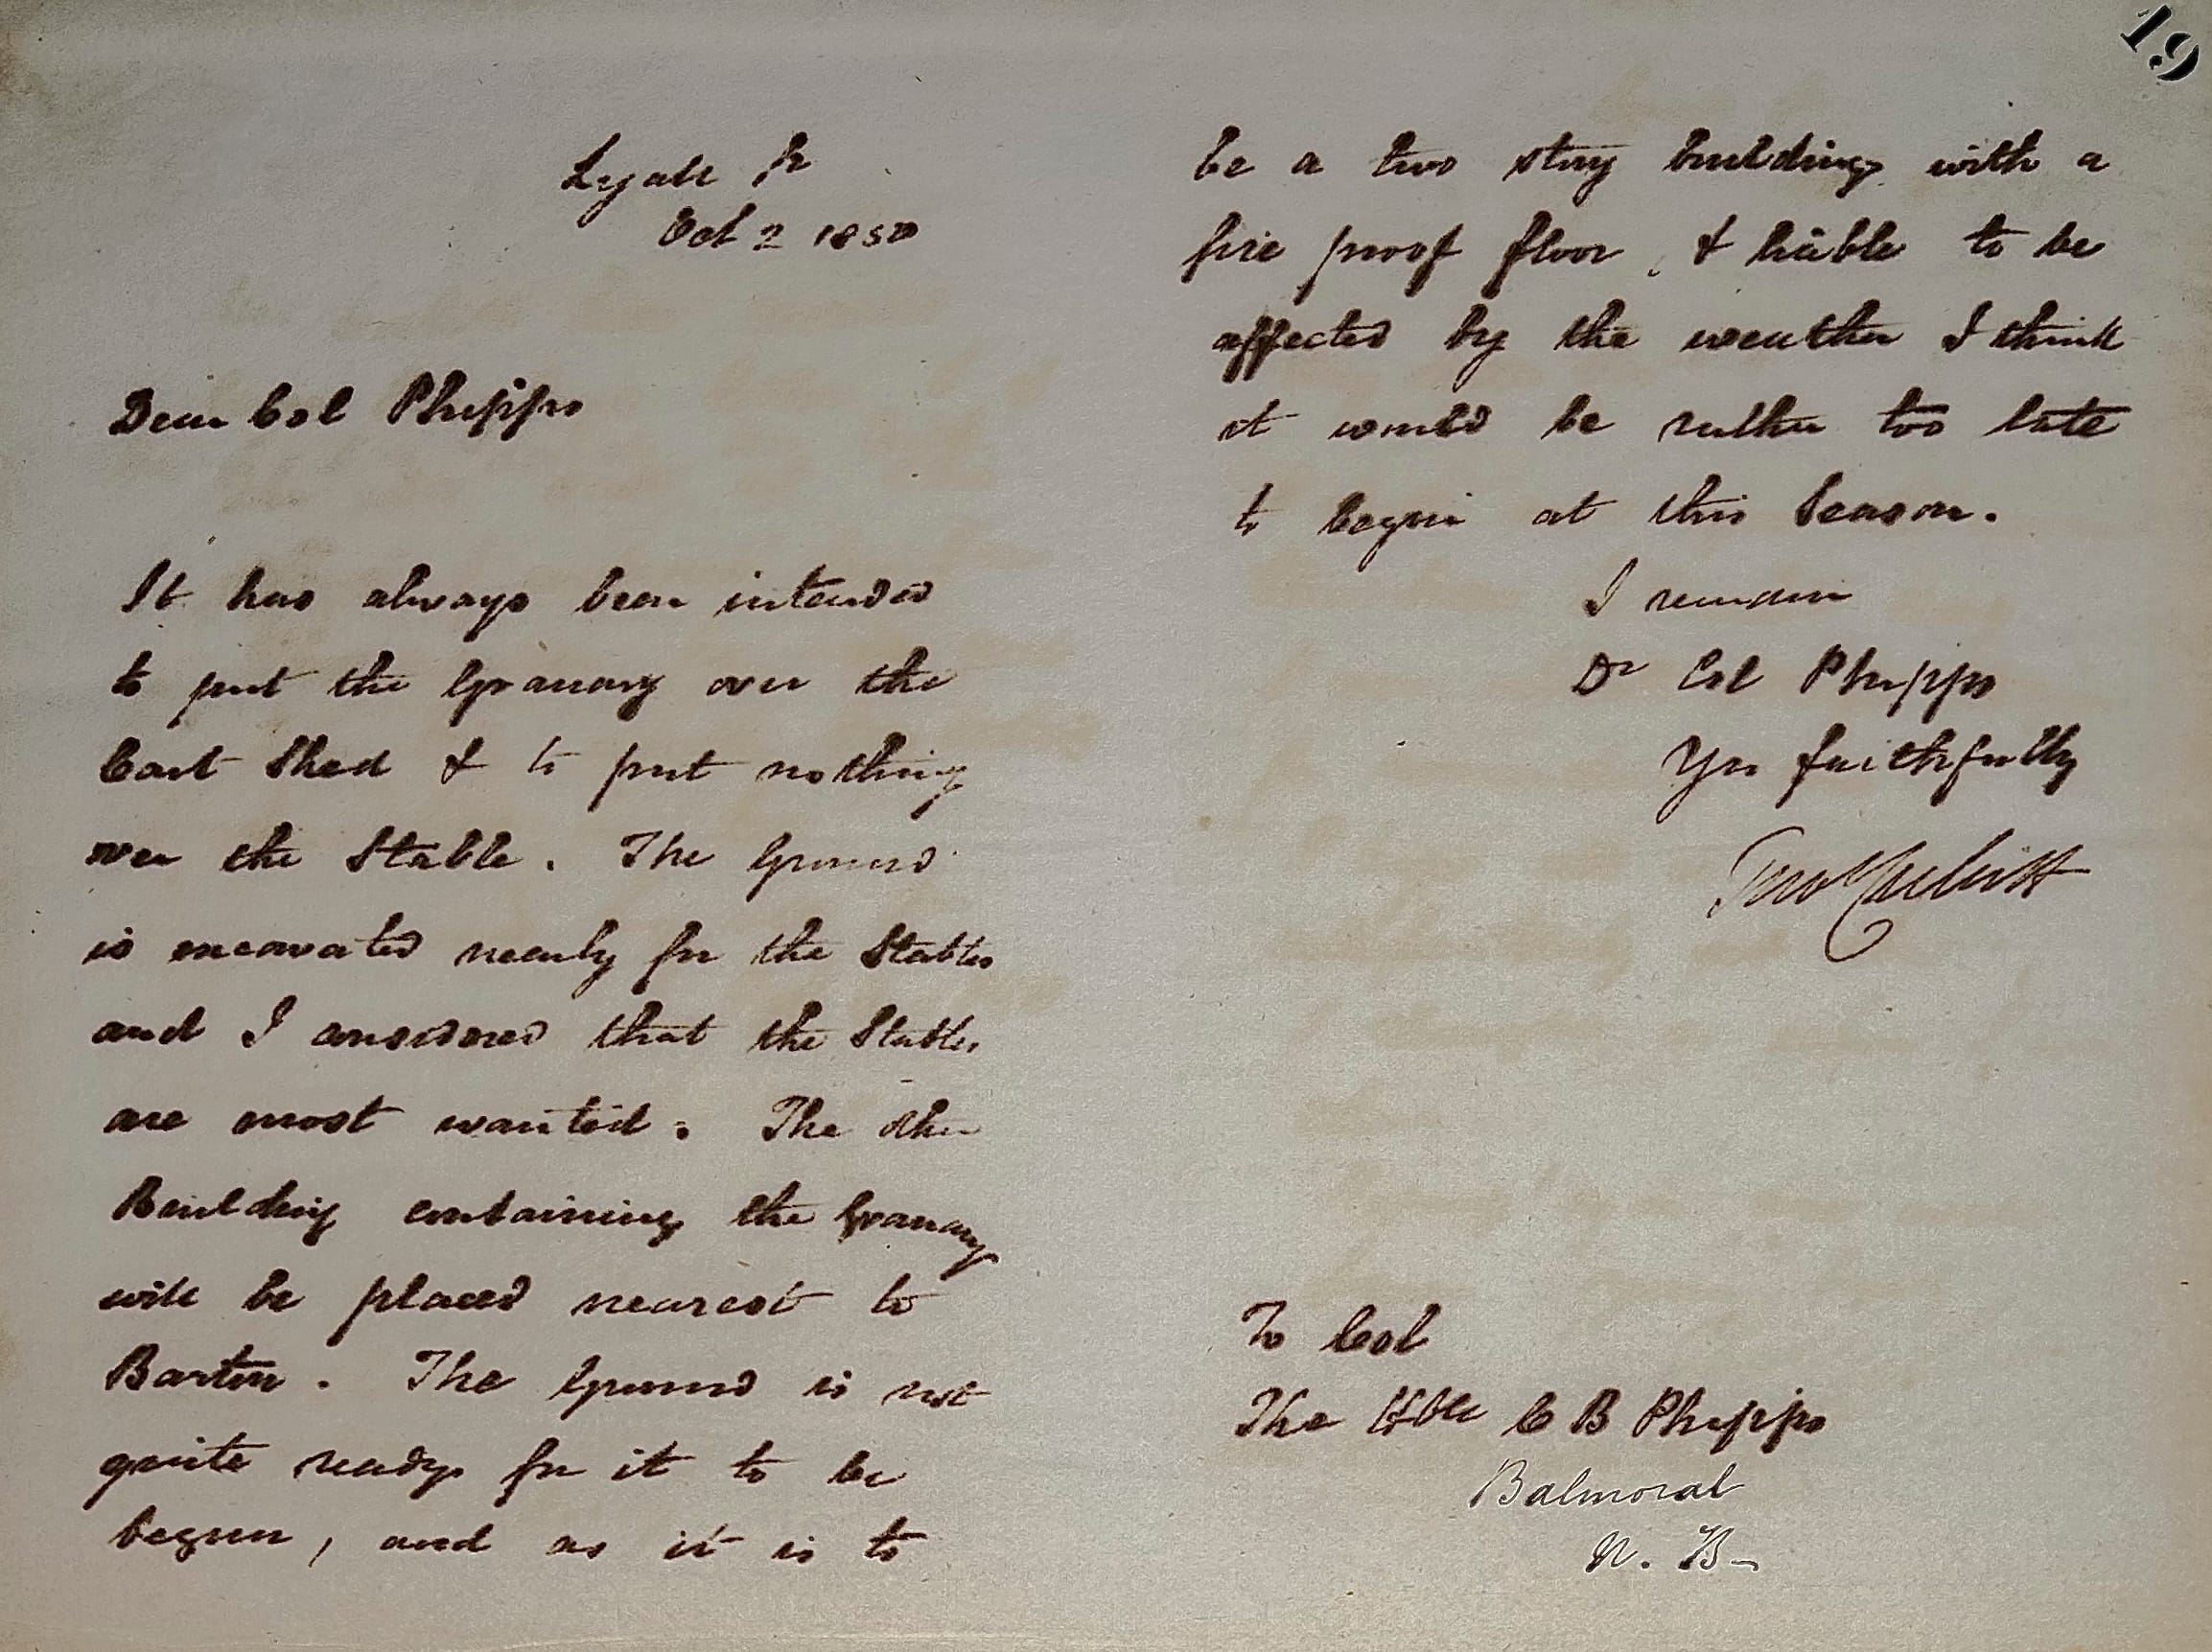 19
Lyall St
Oct 2 1850
Dear Col Phipps
It has always been intended
to put the Granary over the
Cart Shed & to put nothing
over the Stable. The Ground
is excavated nearly for the Stables
and I considered that the Stables
are most wanted. The other
Building containing the Granary
will be placed nearest to
Barton. The Ground is not
quite ready for it to be
begun, and as it is to
be a two story building with a
fire proof floor, & liable to be
affected by the weather I think
it would be rather too late
to begin at this Season.
I remain
Dr Col Phipps
Yrs faithfully
Thos Cubitt
To Col
The Hble C B Phipps
Balmoral
N. B-